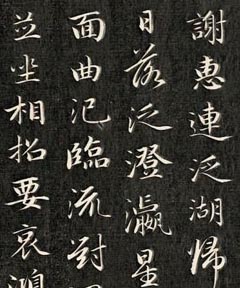 謝惠連泛湖帰
日落泛澄瀛星
面曲汜臨流對
並坐相招要哀鴻